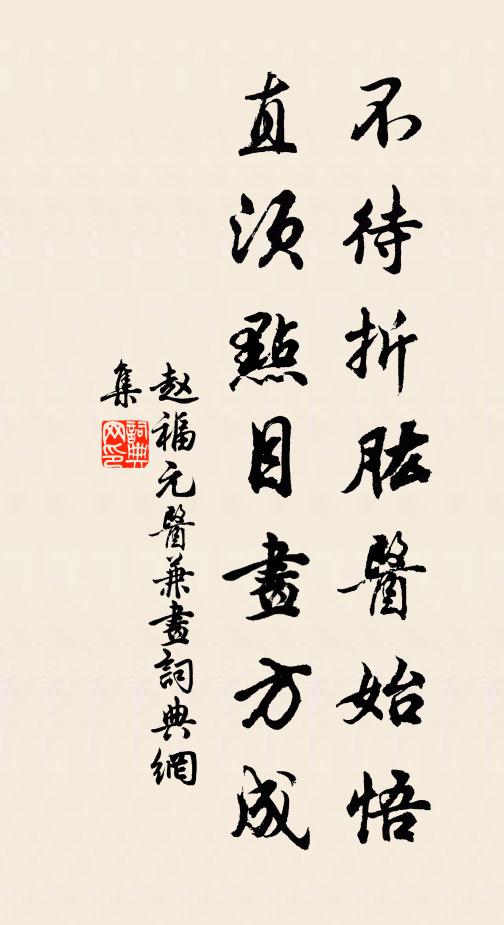 不待折肱醫始悟
直須點目畫方成
赵福元醫兼畫詞典網
集
詞典網印